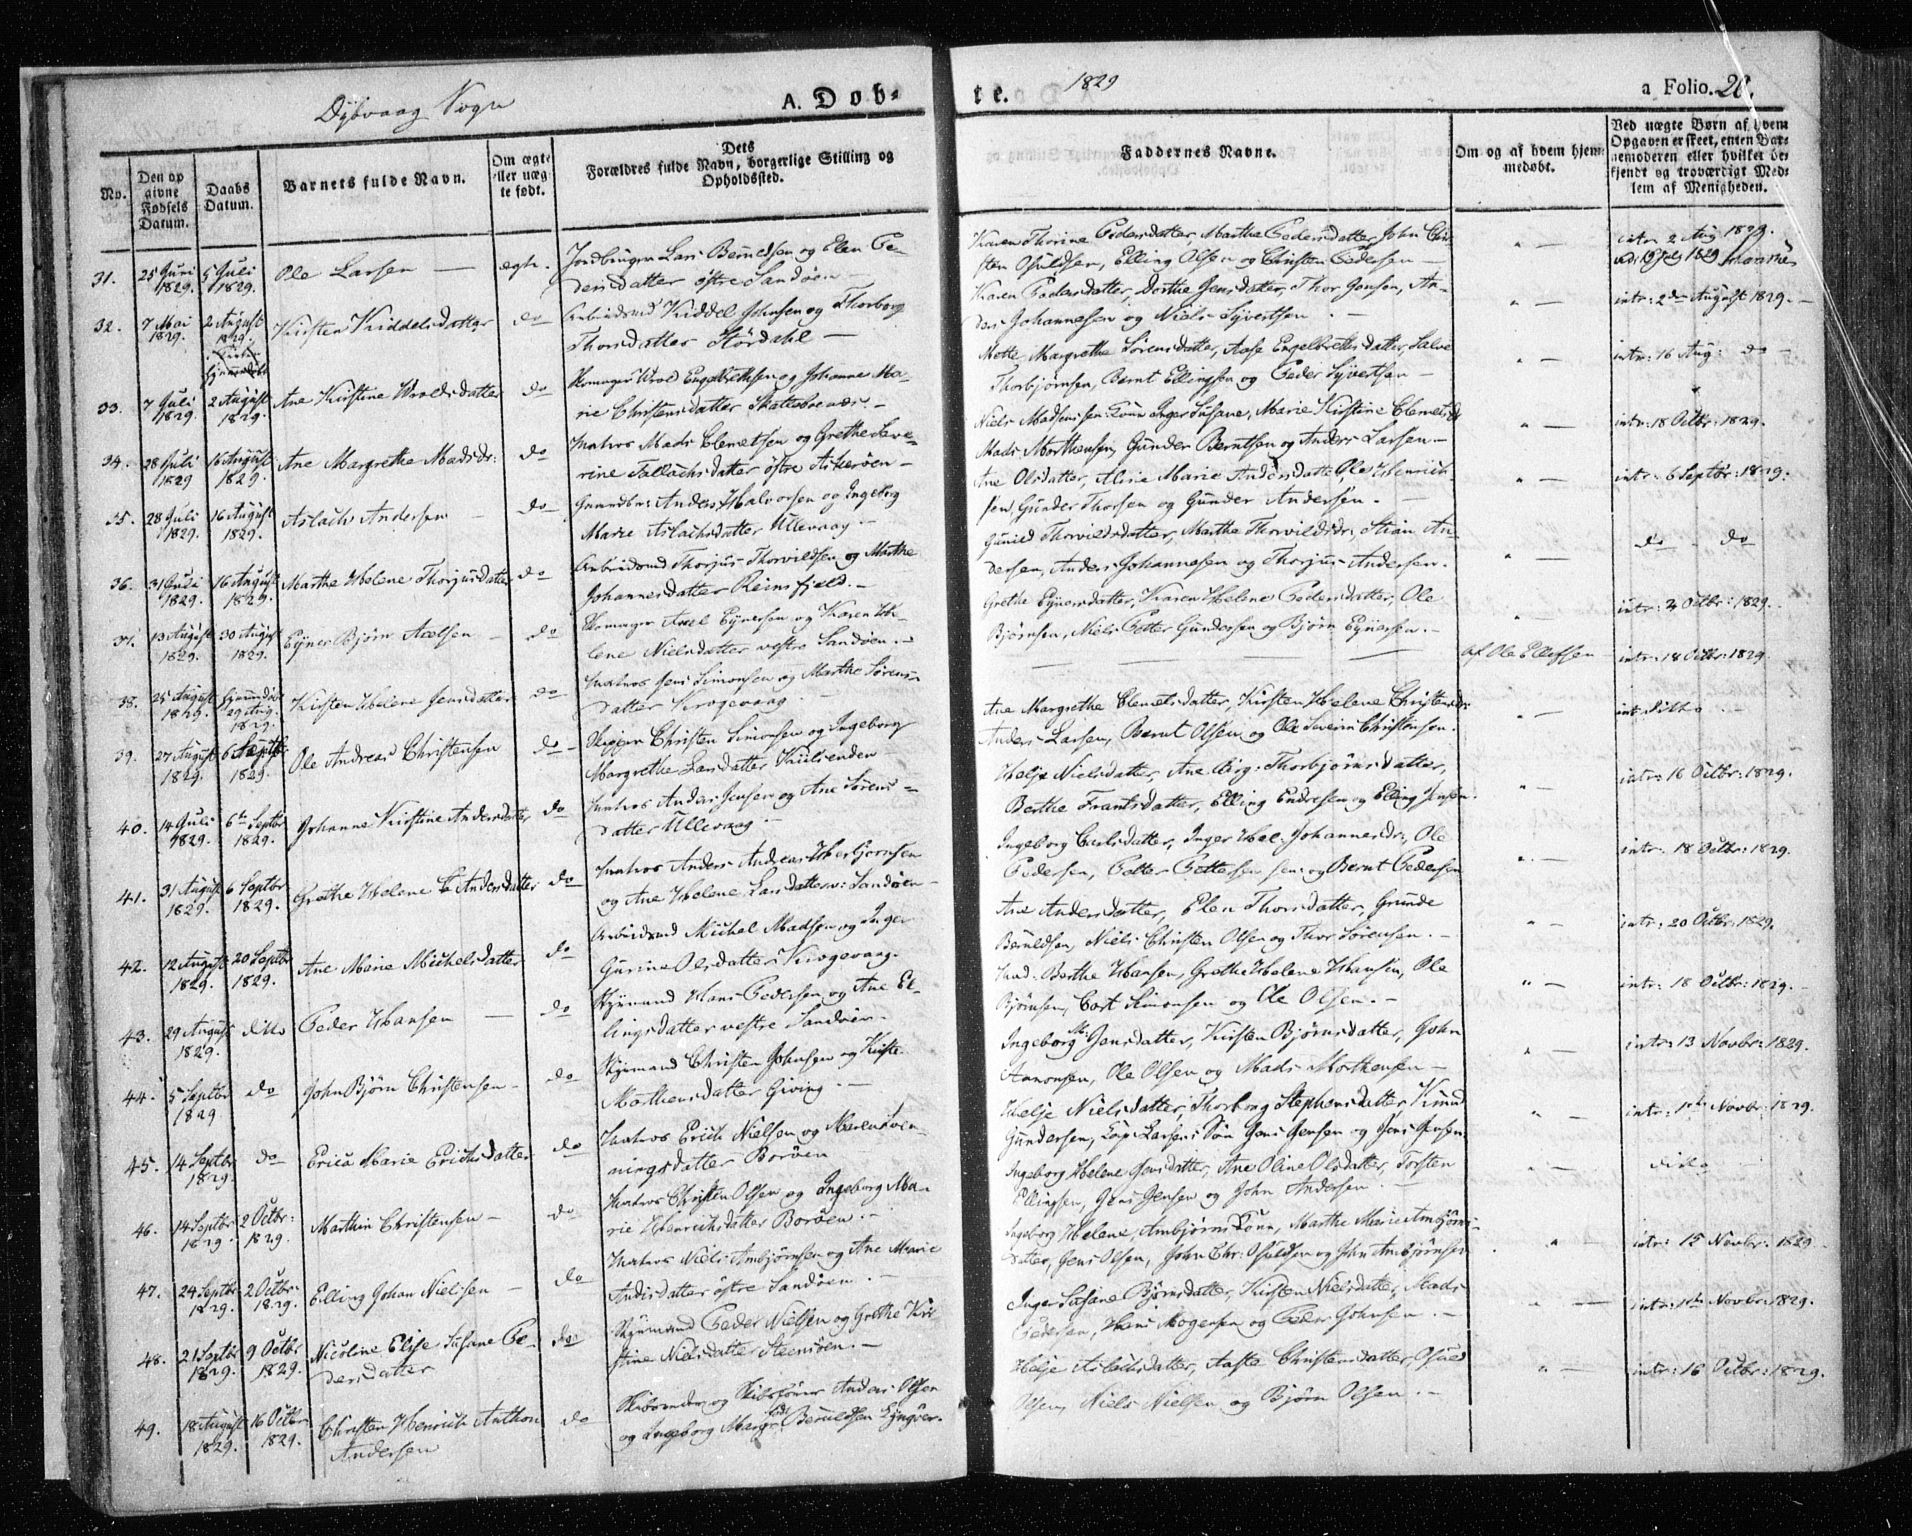 Dybvaag Sogn
A. Dob-
te.
1829
a Folio. 20.
No.
Den opgivne Fødsels Datum.
Daabs Datum.
Barnets fulde Navn.
Om ægte eller uægte født.
Dets Forældres fulde Navn, borgerlige Stilling og Opholdssted.
Faddernes Navne.
Om og af hvem hjemmedøbt.
Ved uægte Børn af hvem Opgaven er skeet, enten Barnemoderen eller hvilket bekjendt og troværdigt Medlem af Menigheden.
31. 25 Juni 1829. 5 Juli 1829. Ole Larsen — ægte.
Lars Berneldsen og Elen Pe-
dersdatter østre Sandøen
Karen Thorine Pedersdatter, Marthe Pedersdatter, John Chri-
sten Osuldsen, Elling Olsen og Christen Pedersen —
intr. 2 Aug 1829.
32. 7 Mai 1829. 2 August 1829. Kirsten Kiddelsdatter do
Arbeidsmd Kiddel Johnsen og Thorborg
Thorsdatter Størdahl —
Karen Pedersdatter, Dorthe Jensdatter, Thor Jensen, An-
ders Johannesen og Niels Syvertsen —
intr: 2den August 1829. —
33. 7 Juli 1829. 2 August 1829. Ane Kirstine Wroldsdatter do
Wrold Engebrethsen og Johanne Ma-
rie Christensdatter
Mette Margrethe Sørensdatter, Aase Engelbrethsdatter, Salve
Thorbjørnsen, Bernt Ellingsen og Peder Syvertsen —
intr: 16 Aug: do —
34. 28 Juli 1829 16 August 1829. Ane Margrethe Madsdr: do
Matros Mads Clemetsen og Grethe Seve-
rine Tallachsdatter østre Askerøen —
Niels Madsens Kone Inger Susane, Marie Kirstine
Mads Morthensen, Gunder Berntsen og Anders Larsen —
intr: 18 Octbr: 1829.
35. 28 Juli 1829. 16 August 1829. Aslach Andersen — do
Anders Halvorsen og Ingeborg
Marie Aslachsdatter Ullevaag —
Ane Olsdatter, Aline Marie Andersdatter, Ole Henrich-
sen, Gunder Thorsen og Gunder Andersen. —
intr: 6 Septbr: 1829.
36. 31 Juli 1829. 16 August 1829. Marthe Helene Thorjusdatter do
Arbeidsmd Thorjus Thorvildsen og Marthe
Johannesdatter Reinsfjeld. —
Gunild Thorvildsdatter, Marthe Thorvildsdr., Stian An-
dersen, Anders Johannesen og Thorjus Andersen.
do — do
37. 13 August 1829. 30 August 1829. Ejner Bjørn Axelsen — do
Axel Ejnersen og Karen He-
lene Nielsdatter vestre Sandøen. —
Grethe Ejnersdatter, Karen Helene Pedersdatter, Ole
Bjørnsen, Niels Petter Gundersen og Bjørn Ejnersen. —
intr: 4 Octbr: 1829.
38. 25 August 1829. hjemmedøbt 29 Aug. 1829. Kirsten Helene Jensdatter do
Matros Jens Simonsen og Marthe Sørens-
datter Krogevaag —
af Ole Ellefsen
intr: 18 Octbr: 1829.
39. 27 August 1829. 6 Septbr 1829. Ole Andreas Christensen do —
Skipper Christen Simonsen og Ingeborg
Margrethe Larsdatter
Ane Margrethe Clemetsdatter, Kirsten Helene Christensdr:
Anders Larsen, Bernt Olsen og Ole Severin Christensen.
intr: ditto
40. 14 Juli 1829. 6te Septbr 1829. Johanne Kirstine Andersdatter do
Matros Anders Jensen og Ane Sørens-
datter Ullevaag —
Helje Nielsdatter, Ane Birg: Thorbjørnsdatter,
Berthe Frantsdatter, Elling Endresen og Elling Jensen.
intr: 18 Octbr: 1829.
41. 31 August 1829. 6 Septbr 1829. Grethe Helene Andersdatter do
Matros Anders Andreas Herbjørnsen
og Ane Helene Larsdatter v: Sandøen —
Ingeborg Carlsdatter, Inger Hel: Johannesdr:, Ole
Pedersen, Petter Pettersen sen: og Bernt Pedersen
intr: 18 Octbr: 1829.
42. 12 August 1829. 20 Septbr 1829. Ane Marie Michelsdatter do
Arbeidsmd Michel Madsen og Inger
Gurine Olsdatter Krogevaag.
Ane Andersdatter, Elen Thorsdatter, Grunde
Berneldsen, Niels Christen Olsen og Thor Sørensen. —
intr: 20 Octbr: 1829.
43. 29 August 1829. ditto Peder Hansen — do
Styrmand Hans Pedersen og Ane El-
lingsdatter vestre Sandøen —
Berthe Hansen, Grethe Helene Hansen, Ole
Bjørnsen, Cort Simonsen og Ole Olsen. —
intr: 18 Octbr: 1829. —
44. 5 Septbr 1829 do John Bjørn Christensen — do
Styrmand Christen Johnsen og Kirste
Morthensdatter Giving —
Ingeborg M: Jensdatter, Kirsten Bjørnsdatter, John
Aanonsen, Ole Olsen og Mads Morthensen —
intr: 13 Novbr: 1829.
45. 14 Septbr 1829. do Erica Marie Erichsdatter do
Matros Erich Nielsen og Maren Sven-
ningsdatter Borøen
Helje Nielsdatter, Thorborg Stephensdatter, Knud
Gundersen, Jens Jensen og Jens Jensen
intr: 1ste Novbr: 1829.
46. 14 Septbr 1829. 2 Octbr: 1829. Marthin Christensen — do
Matros Christen Olsen og Ingeborg Ma-
rie Henrichsdatter Borøen. —
Ingeborg Helene Jensdatter, Ane Oline Olsdatter, Torsten
Ellingsen, Jens Jensen og John Andersen —
ditto
47. 24 Septbr 1829. 2 Octbr: 1829. Elling Johan Nielsen — do
Matros Niels Ambjørnsen og Ane Marie
datter østre Sandøen. —
Ingeborg Helene, Ambjørns Kone, Marthe Marie Ambjørns-
datter, Jens Olsen, John Chr: Osuldsen og John Ambjørnsen
intr: 15 Novbr: 1829.
48. 21 Septbr 1829. 9 Octbr 1829. Nicoline Elise Susane Pe-
dersdatter do
Styrmand Peder Nielsen og Grethe Kir-
stine Nielsdatter Steensøen. —
Inger Susane Bjørnsdatter, Kirsten Nielsdatter, Mads
Pedersen, Hans Mogensen og Peder Johnsen —
intr: 1ste Novbr: 1829.
49. 18 August 1829. 16 Octbr 1829. Christen Henrich Anthon
Andersen do
og Anders Olsen
og Ingeborg Margr: født Berneldsen
Helje Aslachsdatter, Aaste Christensdatter, Osuld
Olsen, Niels Nielsen og Bjørn Olsen. —
intr: 16 Octbr: 1829.